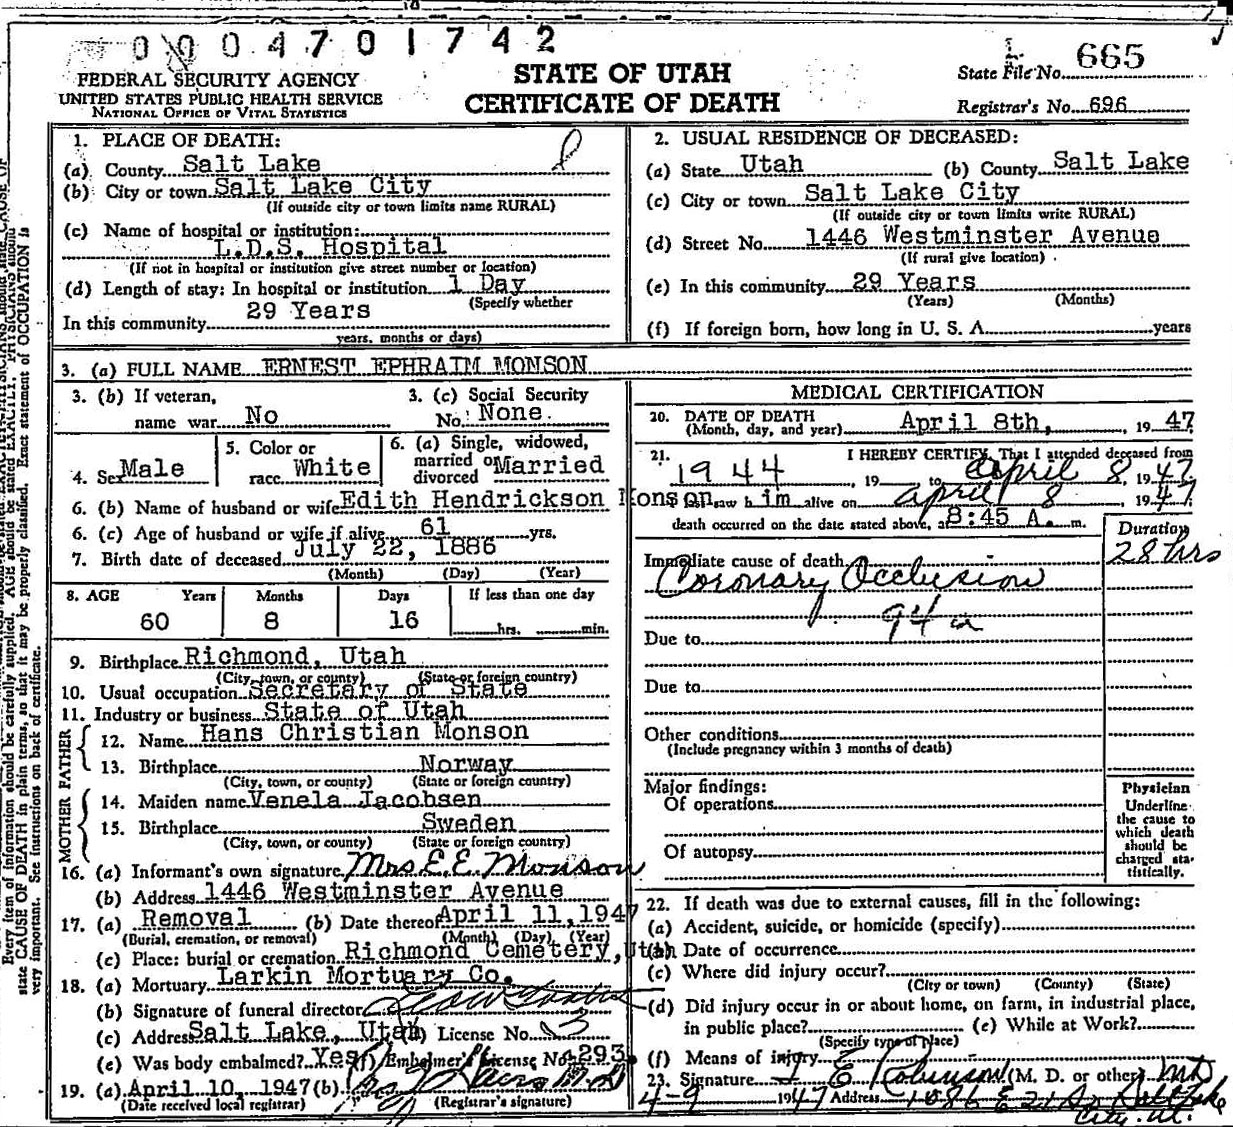 0004701742
FEDERAL SECURITY AGENCY
UNITED STATES PUBLIC HEALTH SERVICE
NATIONAL OFFICE OF VITAL STATISTICS
STATE OF UTAH
CERTIFICATE OF DEATH
State File No. 665
Registrar's No. 696
1. PLACE OF DEATH:
(a) County Salt Lake
(b) City or town Salt Lake City
(If outside city or town limits name RURAL)
(c) Name of hospital or institution:
L.D.S. Hospital
(If not in hospital or institution give street number or location)
(d) Length of stay: In hospital or institution 1 Day
(Specify whether
In this community 29 Years
years, months or days)
2. USUAL RESIDENCE OF DECEASED:
(a) State Utah (b) County Salt Lake
(c) City or town Salt Lake City
(If outside city or town limits write RURAL)
(d) Street No. 1446 Westminster Avenue
(If rural give location)
(e) In this community 29 Years
(Years) (Months)
(f) If foreign born, how long in U. S. A. years
3. (a) FULL NAME ERNEST EPHRAIM MONSON
3. (b) If veteran,
name war No
3. (c) Social Security
No. None.
4. Sex Male
5. Color or
race White
6. (a) Single, widowed,
married or Married
divorced
6. (b) Name of husband or wife Edith Hendrickson Monson
6. (c) Age of husband or wife if alive 61 yrs.
7. Birth date of deceased July 22, 1886
(Month) (Day) (Year)
8. AGE Years Months Days If less than one day
60 8 16 hrs. min.
9. Birthplace Richmond, Utah
(City, town, or county) (State or foreign country)
10. Usual occupation Secretary of State
11. Industry or business State of Utah
FATHER
12. Name Hans Christian Monson
13. Birthplace Norway
(City, town, or county) (State or foreign country)
MOTHER
14. Maiden name Venela Jacobsen
15. Birthplace Sweden
(City, town, or county) (State or foreign country)
16. (a) Informant's own signature Mrs E. E. Monson
(b) Address 1446 Westminster Avenue
17. (a) Removal (b) Date thereof April 11, 1947
(Burial, cremation, or removal) (Month) (Day) (Year)
(c) Place: burial or cremation Richmond Cemetery, Utah
18. (a) Mortuary Larkin Mortuary Co.
(b) Signature of funeral director
(c) Address Salt Lake, Utah (d) License No. 3
(e) Was body embalmed? Yes (f) Embalmer's License No. 293.
19. (a) April 10, 1947 (b)
(Date received local registrar) (Registrar's signature)
MEDICAL CERTIFICATION
20. DATE OF DEATH
(Month, day, and year) April 8th, 19 47
21. I HEREBY CERTIFY, That I attended deceased from
1944, 19 to April 8, 1947
last saw him alive on April 8, 1947
death occurred on the date stated above, at 8:45 A. m.
Duration
Immediate cause of death 28 hrs
Coronary Occlusion
94a
Due to
Due to
Other conditions
(Include pregnancy within 3 months of death)
Major findings:
Of operations
Of autopsy
Physician
Underline
the cause to
which death
should be
charged sta-
tistically.
22. If death was due to external causes, fill in the following:
(a) Accident, suicide, or homicide (specify)
(b) Date of occurrence
(c) Where did injury occur?
(City or town) (County) (State)
(d) Did injury occur in or about home, on farm, in industrial place,
in public place? (e) While at Work?
(Specify type of place)
(f) Means of injury
23. Signature E Robinson (M. D. or other) MD
4-9 1947 Address 1086 E 21 So Salt Lake
City. Ut.
Every item of information should be carefully supplied. AGE should be stated EXACTLY. PHYSICIANS should
state CAUSE OF DEATH in plain terms, so that it may be properly classified. Exact statement of OCCUPATION is
very important. See instructions on back of certificate.